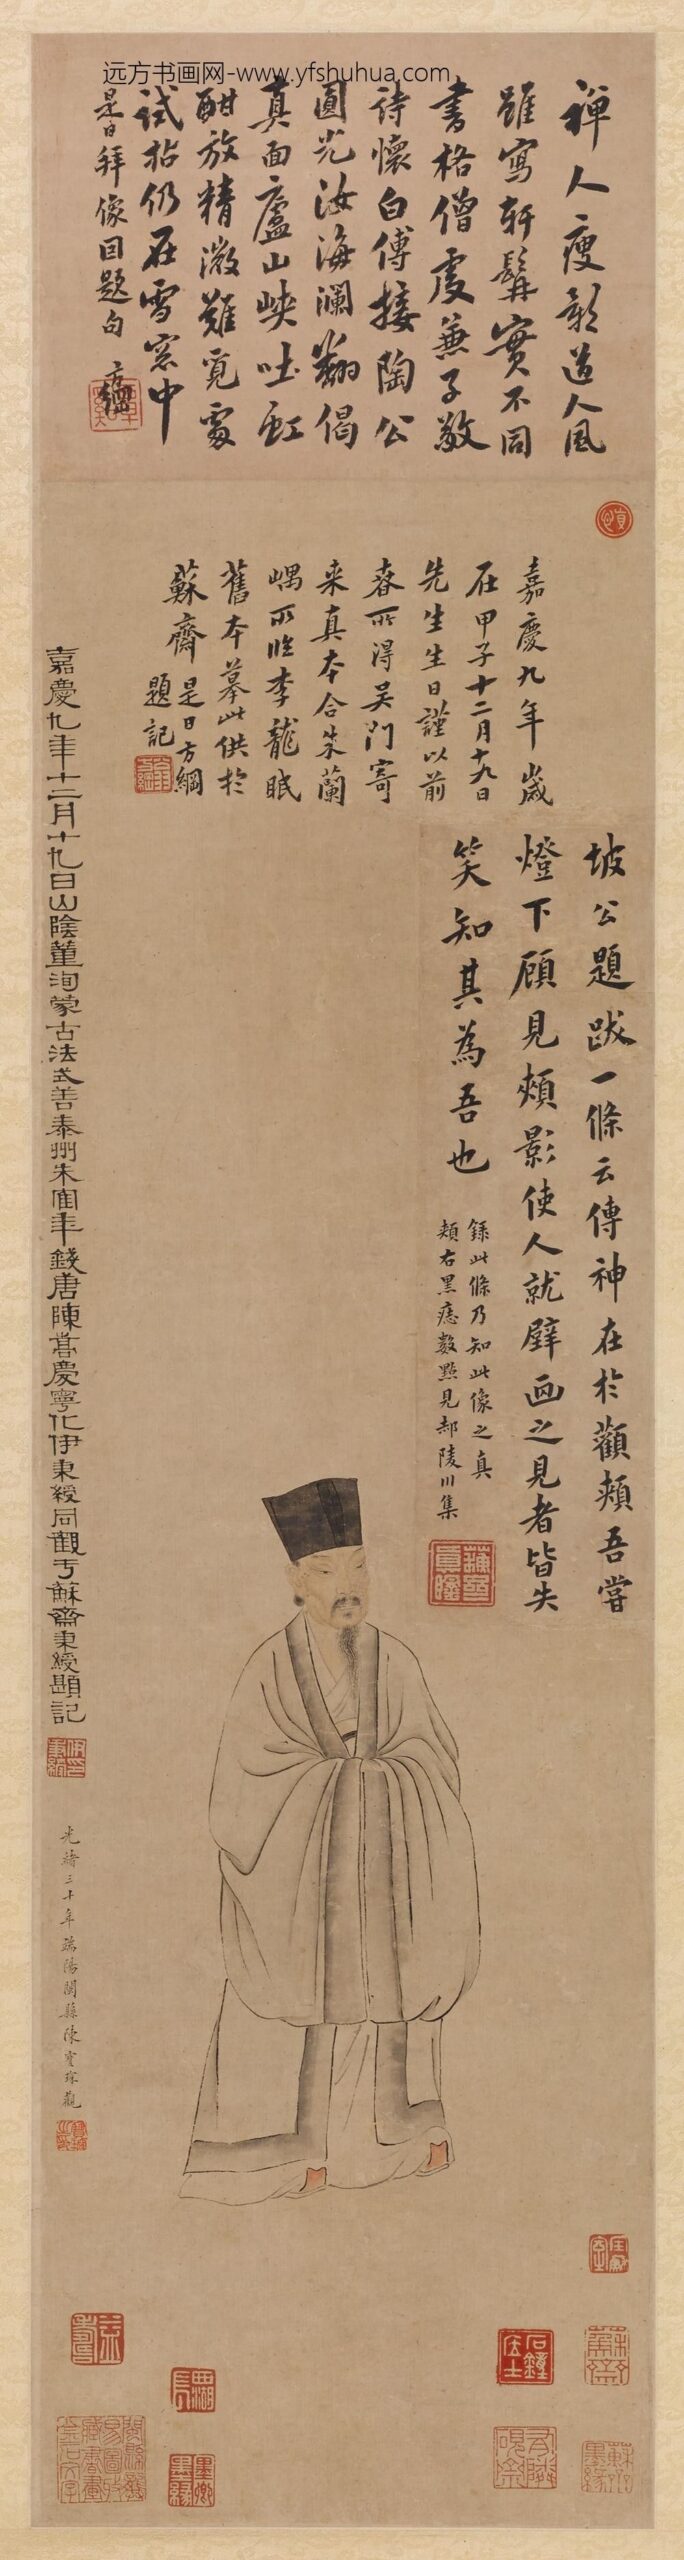 远方书画网-www.yfshuhua.com
禅人瘦影道人風
雖寫軒髯實不同
書格僧虔兼子敬
詩懷白傅接陶公
圓光汝海瀾翻偈
真面廬山峽吐虹
酣放精微難覓處
試拈仍在雪窓中
是日拜像因題句 方綱
嘉慶九年歲
在甲子十二月十九日
先生生日謹以前
春所得吴門寄
来真本合朱蘭
嵎所臨李龍眠
舊本摹此供於
蘇齋 是日方綱
題記
坡公題跋一條云傳神在於顴頰吾嘗
燈下顧見頰影使人就壁画之見者皆失
笑知其為吾也
録此條乃知此像之真
頰右黑痣數點見郝陵川集
嘉慶九年十二月十九日山陰董洵蒙古法式善泰州朱寉年錢唐陳嵩慶寧化伊秉綬同觀于蘇齋秉綬題記
光緒三十年端陽閩縣陳寶琛觀